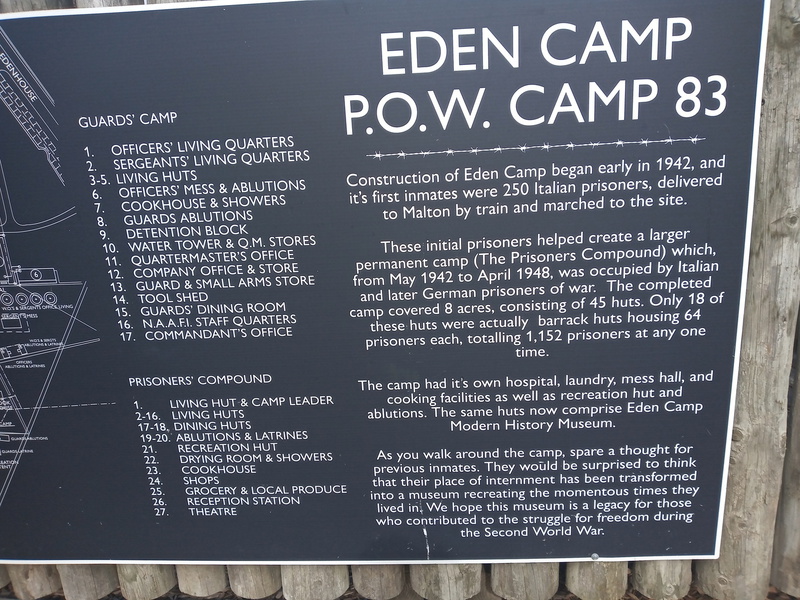 EDENHOUSE
6
GUARDS' CAMP
1. OFFICERS' LIVING QUARTERS
2. SERGEANTS' LIVING QUARTERS
3-5. LIVING HUTS
6. OFFICERS' MESS & ABLUTIONS
7. COOKHOUSE & SHOWERS
8. GUARDS ABLUTIONS
9. DETENTION BLOCK
10. WATER TOWER & Q.M. STORES
11. QUARTERMASTER'S OFFICE
12. COMPANY OFFICE & STORE
13. GUARD & SMALL ARMS STORE
14. TOOL SHED
15. GUARDS' DINING ROOM
16. N.A.A.F.I. STAFF QUARTERS
17. COMMANDANT'S OFFICE
PRISONERS' COMPOUND
1. LIVING HUT & CAMP LEADER
2-16. LIVING HUTS
17-18. DINING HUTS
19-20. ABLUTIONS & LATRINES
21. RECREATION HUT
22. DRYING ROOM & SHOWERS
23. COOKHOUSE
24. SHOPS
25. GROCERY & LOCAL PRODUCE
26. RECEPTION STATION
27. THEATRE
EDEN CAMP
P.O.W. CAMP 83
Construction of Eden Camp began early in 1942, and
it's first inmates were 250 Italian prisoners, delivered
to Malton by train and marched to the site.
These initial prisoners helped create a larger
permanent camp (The Prisoners Compound) which,
from May 1942 to April 1948, was occupied by Italian
and later German prisoners of war. The completed
camp covered 8 acres, consisting of 45 huts. Only 18 of
these huts were actually barrack huts housing 64
prisoners each, totalling 1,152 prisoners at any one
time.
The camp had it's own hospital, laundry, mess hall, and
cooking facilities as well as recreation hut and
ablutions. The same huts now comprise Eden Camp
Modern History Museum.
As you walk around the camp, spare a thought for
previous inmates. They would be surprised to think
that their place of internment has been transformed
into a museum recreating the momentous times they
lived in. We hope this museum is a legacy for those
who contributed to the struggle for freedom during
the Second World War.